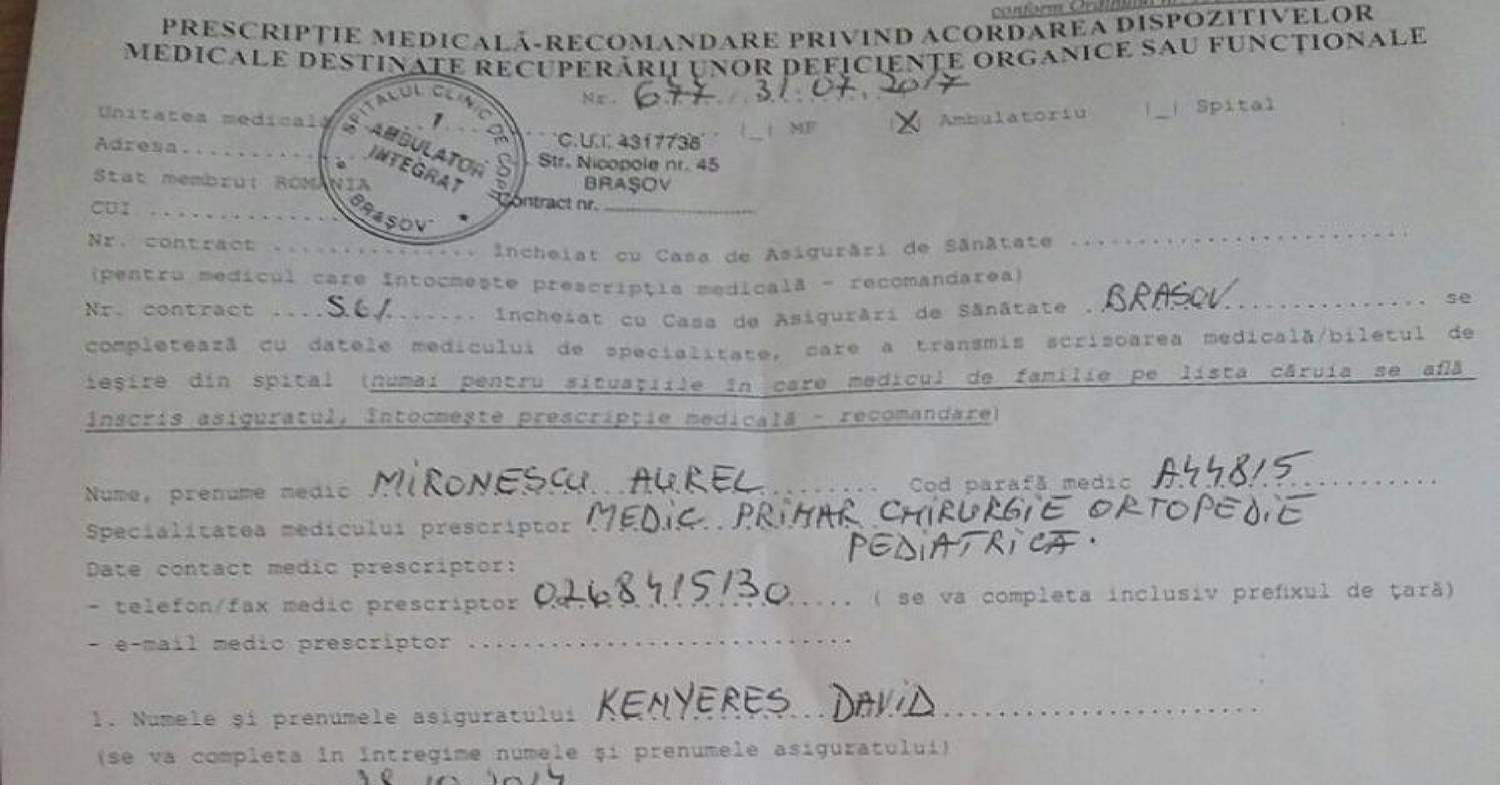 conform Ordinului nr.
PRESCRIPȚIE MEDICALĂ-RECOMANDARE PRIVIND ACORDAREA DISPOZITIVELOR
MEDICALE DESTINATE RECUPERĂRII UNOR DEFICIENȚE ORGANICE SAU FUNCȚIONALE
Nr. 677 31.07.2017
Unitatea medicală |_| MF |X| Ambulatoriu |_| Spital
SPITALUL CLINIC DE COPII
1
AMBULATOR
INTEGRAT
BRAȘOV
C.U.I. 4317738
Str. Nicopole nr. 45
BRAȘOV
Contract nr.
Adresa..........
Stat membru: ROMANIA
CUI ..............
Nr. contract .............. încheiat cu Casa de Asigurări de Sănătate ........................
(pentru medicul care întocmește prescripția medicală - recomandarea)
Nr. contract .... încheiat cu Casa de Asigurări de Sănătate . BRASOV ............... se
completează cu datele medicului de specialitate, care a transmis scrisoarea medicală/biletul de
ieșire din spital (numai pentru situațiile în care medicul de familie pe lista căruia se află
înscris asiguratul, întocmește prescripție medicală - recomandare)
Nume, prenume medic MIRONESCU AUREL ........ Cod parafă medic A44815 ..........
Specialitatea medicului prescriptor MEDIC PRIMAR CHIRURGIE ORTOPEDIE
PEDIATRICA.
Date contact medic prescriptor:
- telefon/fax medic prescriptor 0268415130 ..... ( se va completa inclusiv prefixul de țară)
- e-mail medic prescriptor .............................
1. Numele și prenumele asiguratului KENYERES DAVID ........................
(se va completa în întregime numele și prenumele asiguratului)